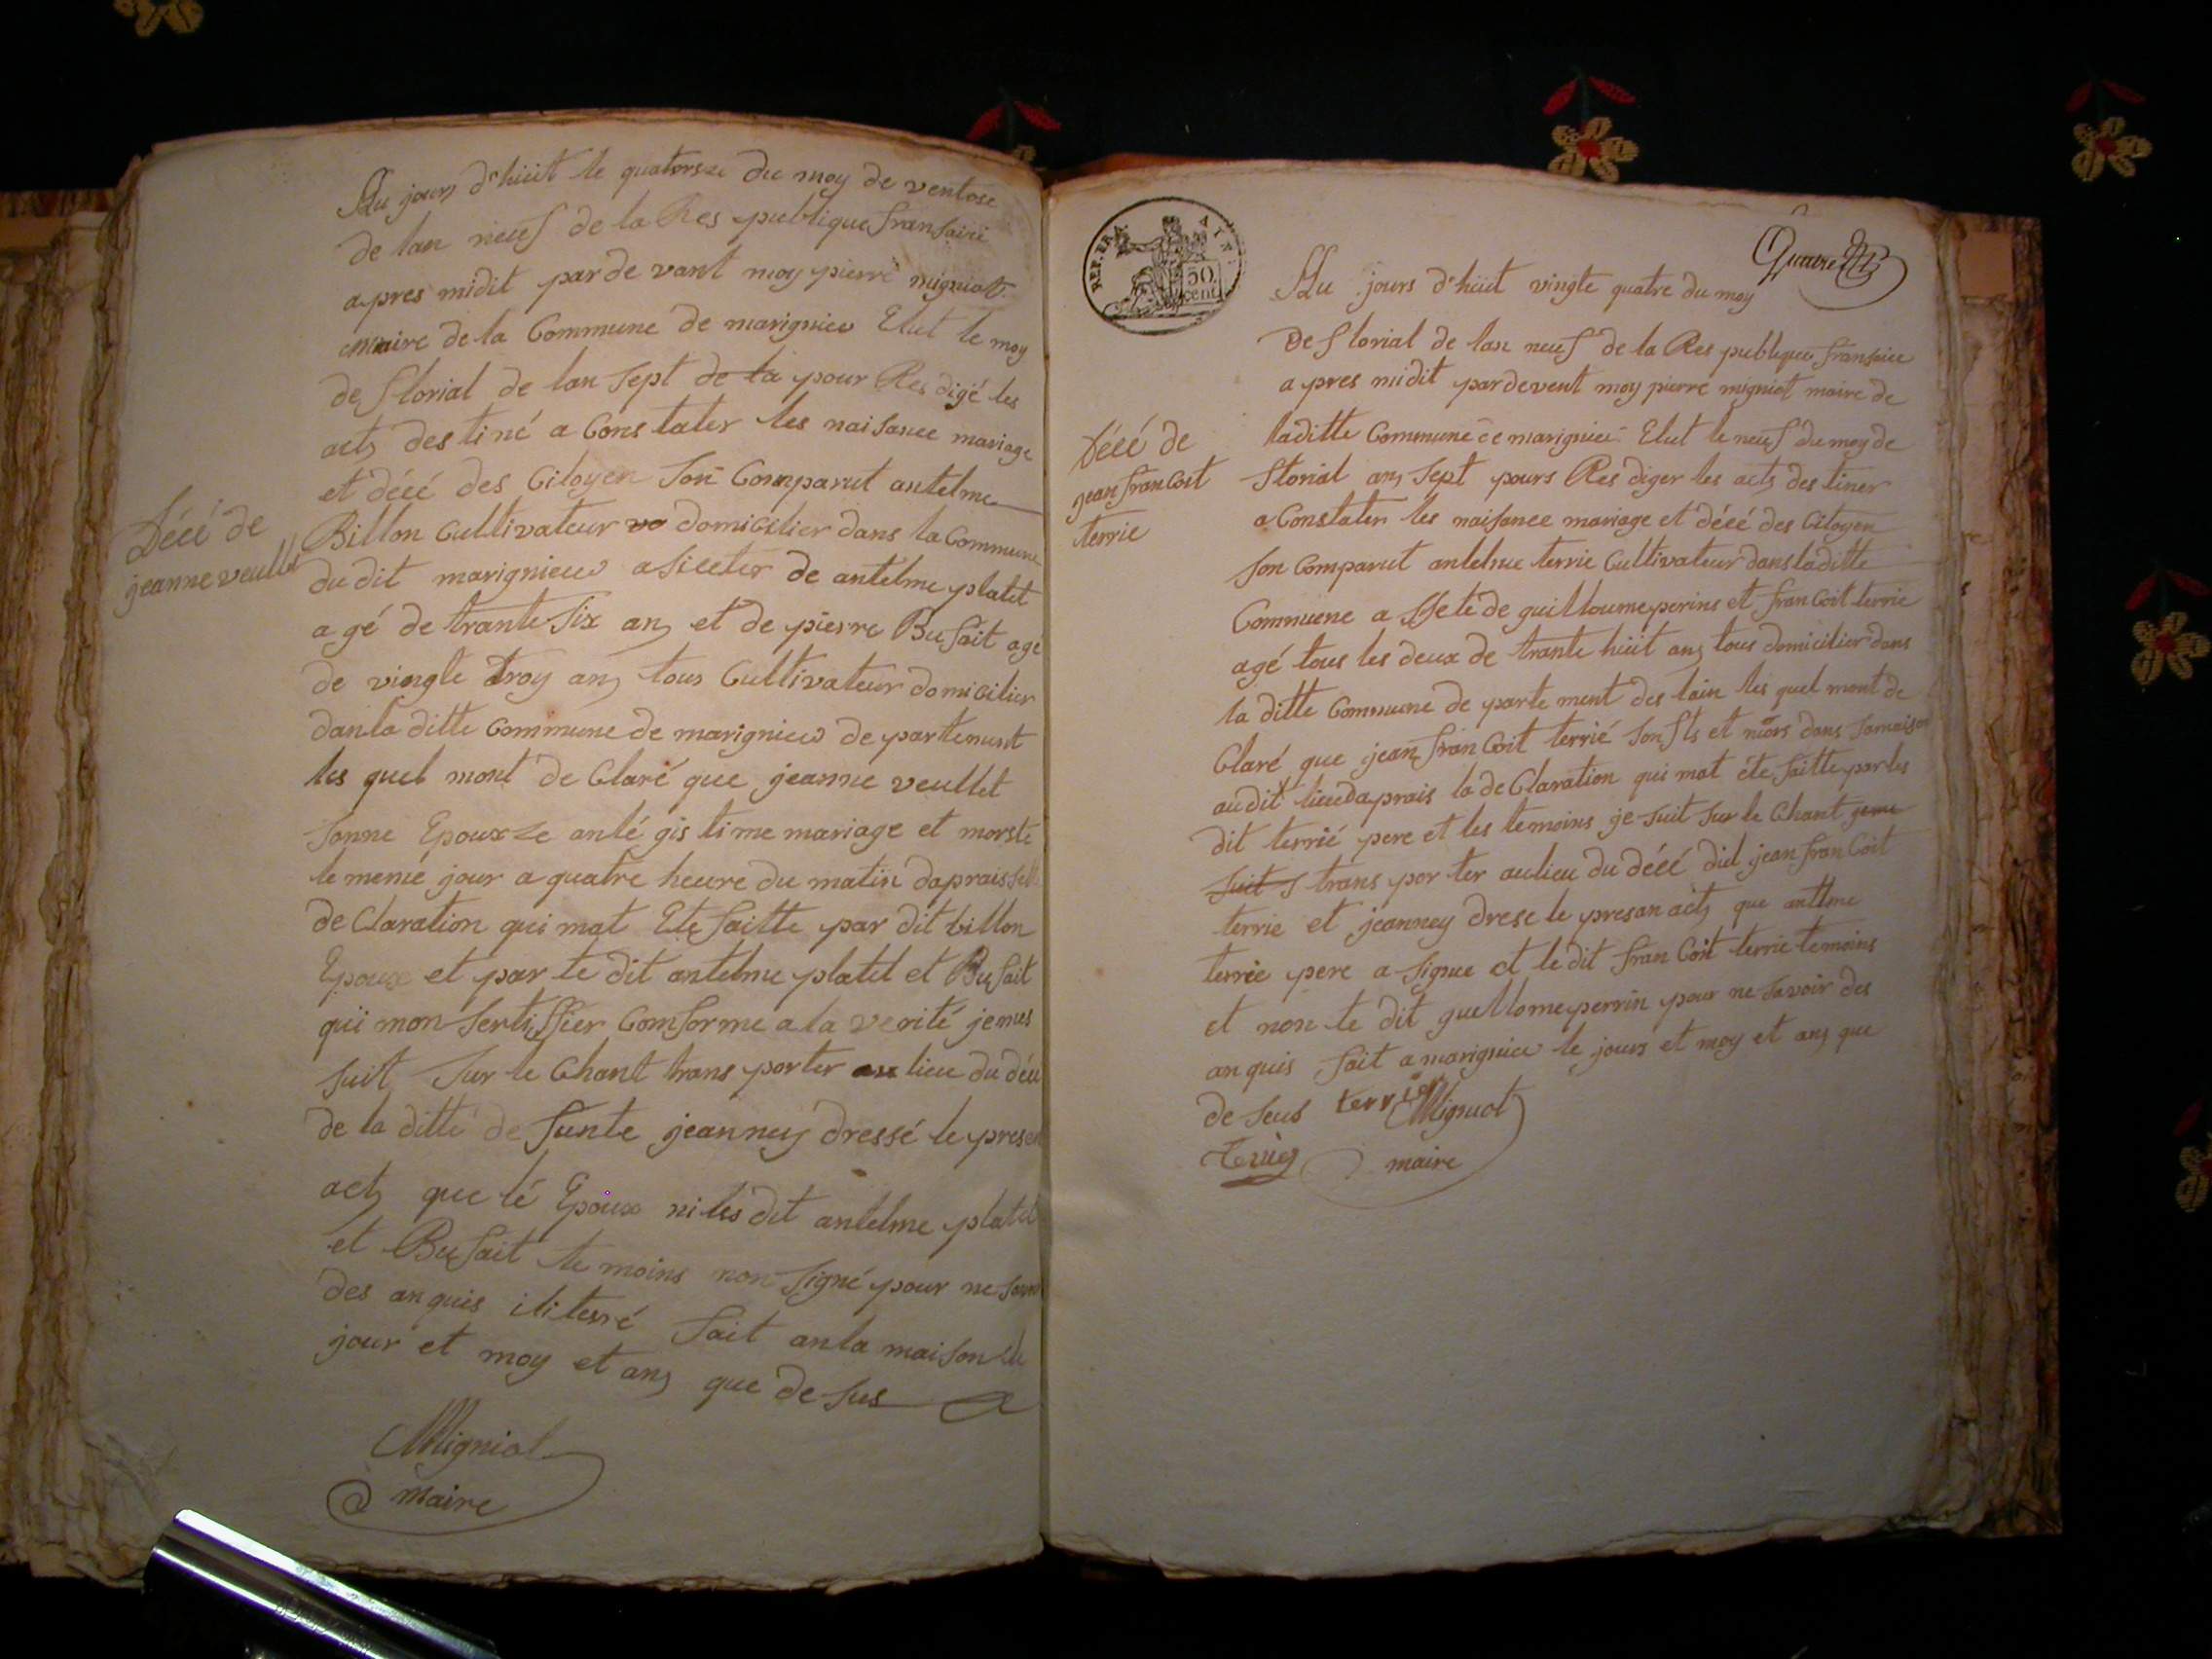 Au jours d'huit le quatorsze du moy de ventose
de lan neuf de la Res publique fransaire
apres midit par de vant moy pierre migniot
maire de la Commune de marignieu Elut le moy
de florial de lan sept de la pour Res digé les
acts des tiné a Cons tater les naisance mariage
et décé des Citoyen Son Comparut antelme
Décé de
jeanne veullet
Billon Cultivateur domicilier dans la Commune
du dit marignieu asicter de antelme platet
agé de trante six ans et de pierre Bufait agé
de vingte troy ans tous Cultivateur domicilier
danla ditte Commune de marignieu de partement
les quel mont de Claré que jeanne veullet
sonne Epouxze anlé gis time mariage et morste
le meme jour a quatre heure du matin daprais
de Claration qui mat Ete faitte par dit billon
Epoux et par le dit antelme platet et Bufait
qui mon sertiffier Comforme a la verité jemes
suit sur le Chant trans porter au lieu du décé
de la ditte de funte jeanney dressé le presen
acts que lé Epoux ni les dit antelme platet
et Bufait te moins non signé pour ne
des anquis iliterré fait anla maison
jour et moy et ans que de sus
Migniot
maire
REP. FRA.
50
cent
Au jours d'huit vingte quatre du moy
De florial de lan neuf de la Res publique fransaire
apres midit pardevent moy pierre migniot maire de
laditte Commune de marignieu Elut le neuf du moy de
Décé de
jean franCoit
terrie
florial ans sept pours Res diger les acts des tiner
a Constater les naisance mariage et décé des Citoyen
son Comparut antelme terrie Cultivateur dans laditte
Commune a ssete de guilloume perins et franCoit terrie
agé tous les deux de trante huit ans tous domicilier dans
la ditte Commune de parte ment des lain les quel mont de
Claré que jean franCoit terrié son fls et mors dans samaison
audit lieu daprais la de Claration qui mat ete faitte par les
dit terrié pere et les temoins je suit sur le Chant jeme
suit s trans por ter au lieu du décé did jean franCoit
terrie et jeanney drese le presan acts que antlme
terrie pere a signee et le dit franCoit terrie temoins
et non le dit guellome perrin pour ne savoir des
anquis fait a marignieu le jours et moy et ans que
de seus terrier Mignot
terrier maire